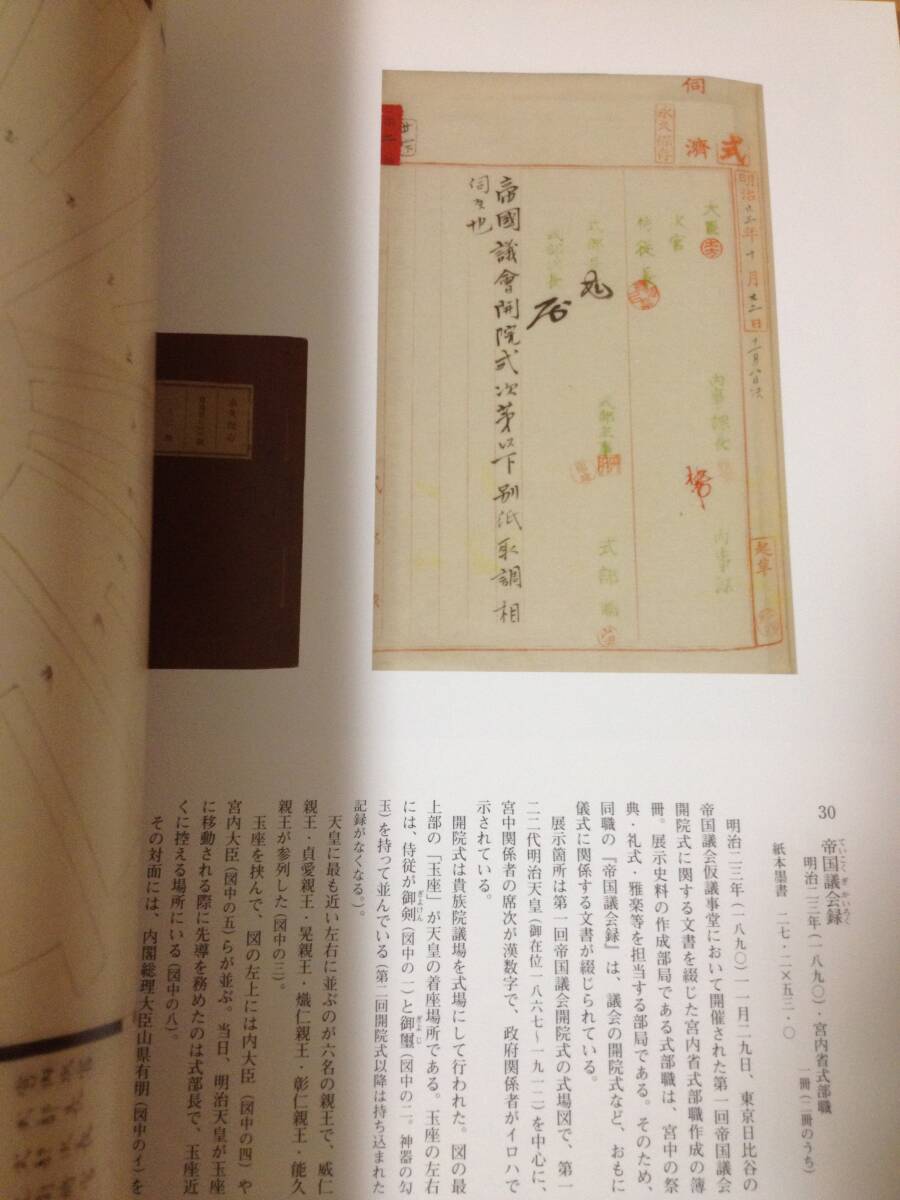 伺
永久保存
式
濟
明治廿三年十月廿二日
十一月八日決
起草
大臣
次官
侍従長
内事課長
式部長
式部次長
帝國議會開院式次第以下別紙取調相
伺候也
永久保存
30
帝国議会録
ていこくぎかいろく
明治二三年(一八九〇)・宮内省式部職
一冊(二冊のうち)
紙本墨書 二七・二×五三・〇
明治二三年(一八九〇)一一月二九日、東京日比谷の
帝国議会仮議事堂において開催された第一回帝国議会
開院式に関する文書を綴じた宮内省式部職作成の簿
冊。展示史料の作成部局である式部職は、宮中の祭
典・礼式・雅楽等を担当する部局である。そのため、
同職の『帝国議会録』は、議会の開院式など、おもに
儀式に関係する文書が綴じられている。
展示箇所は第一回帝国議会開院式の式場図で、第一
二二代明治天皇(御在位一八六七〜一九一二)を中心に、
宮中関係者の席次が漢数字で、政府関係者がイロハで
示されている。
開院式は貴族院議場を式場にして行われた。図の最
上部の「玉座」が天皇の着座場所である。玉座の左右
には、侍従が御剣(図中の一)と御璽(図中の二。神器の勾
ぎよけん
ぎよじ
玉)を持って並んでいる(第二回開院式以降は持ち込まれた
記録がなくなる)。
天皇に最も近い左右に並ぶのが六名の親王で、威仁
親王・貞愛親王・晃親王・熾仁親王・彰仁親王・能久
親王が参列した(図中の三)。
玉座を挟んで、図の左上には内大臣(図中の四)や
宮内大臣(図中の五)らが並ぶ。当日、明治天皇が玉座
に移動される際に先導を務めたのは式部長で、玉座近
くに控える場所にいる(図中の八)。
その対面には、内閣総理大臣山県有朋(図中のイ)を